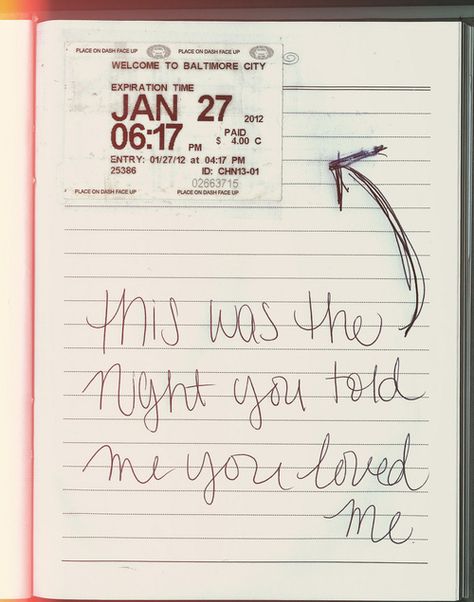 PLACE ON DASH FACE UP PLACE ON DASH FACE UP
WELCOME TO BALTIMORE CITY
EXPIRATION TIME
JAN 27 2012
06:17 PM PAID
$ 4.00 C
ENTRY: 01/27/12 at 04:17 PM
25386 ID: CHN13-01
02663715
PLACE ON DASH FACE UP PLACE ON DASH FACE UP
this was the
night you told
me you loved
me.